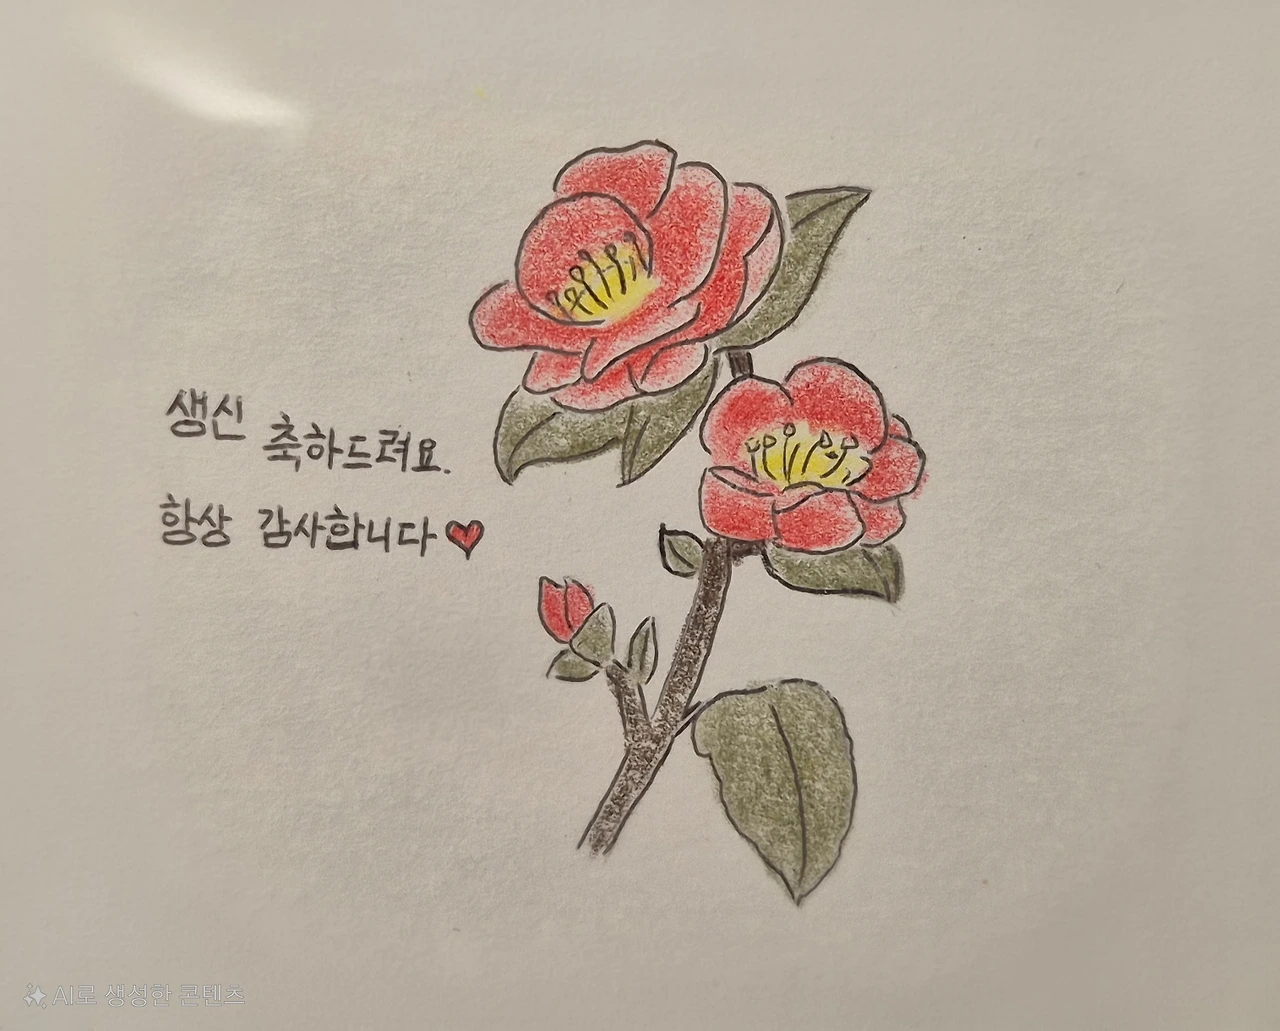 생신 축하드려요.
항상 감사합니다♥
AI로 생성한 콘텐츠